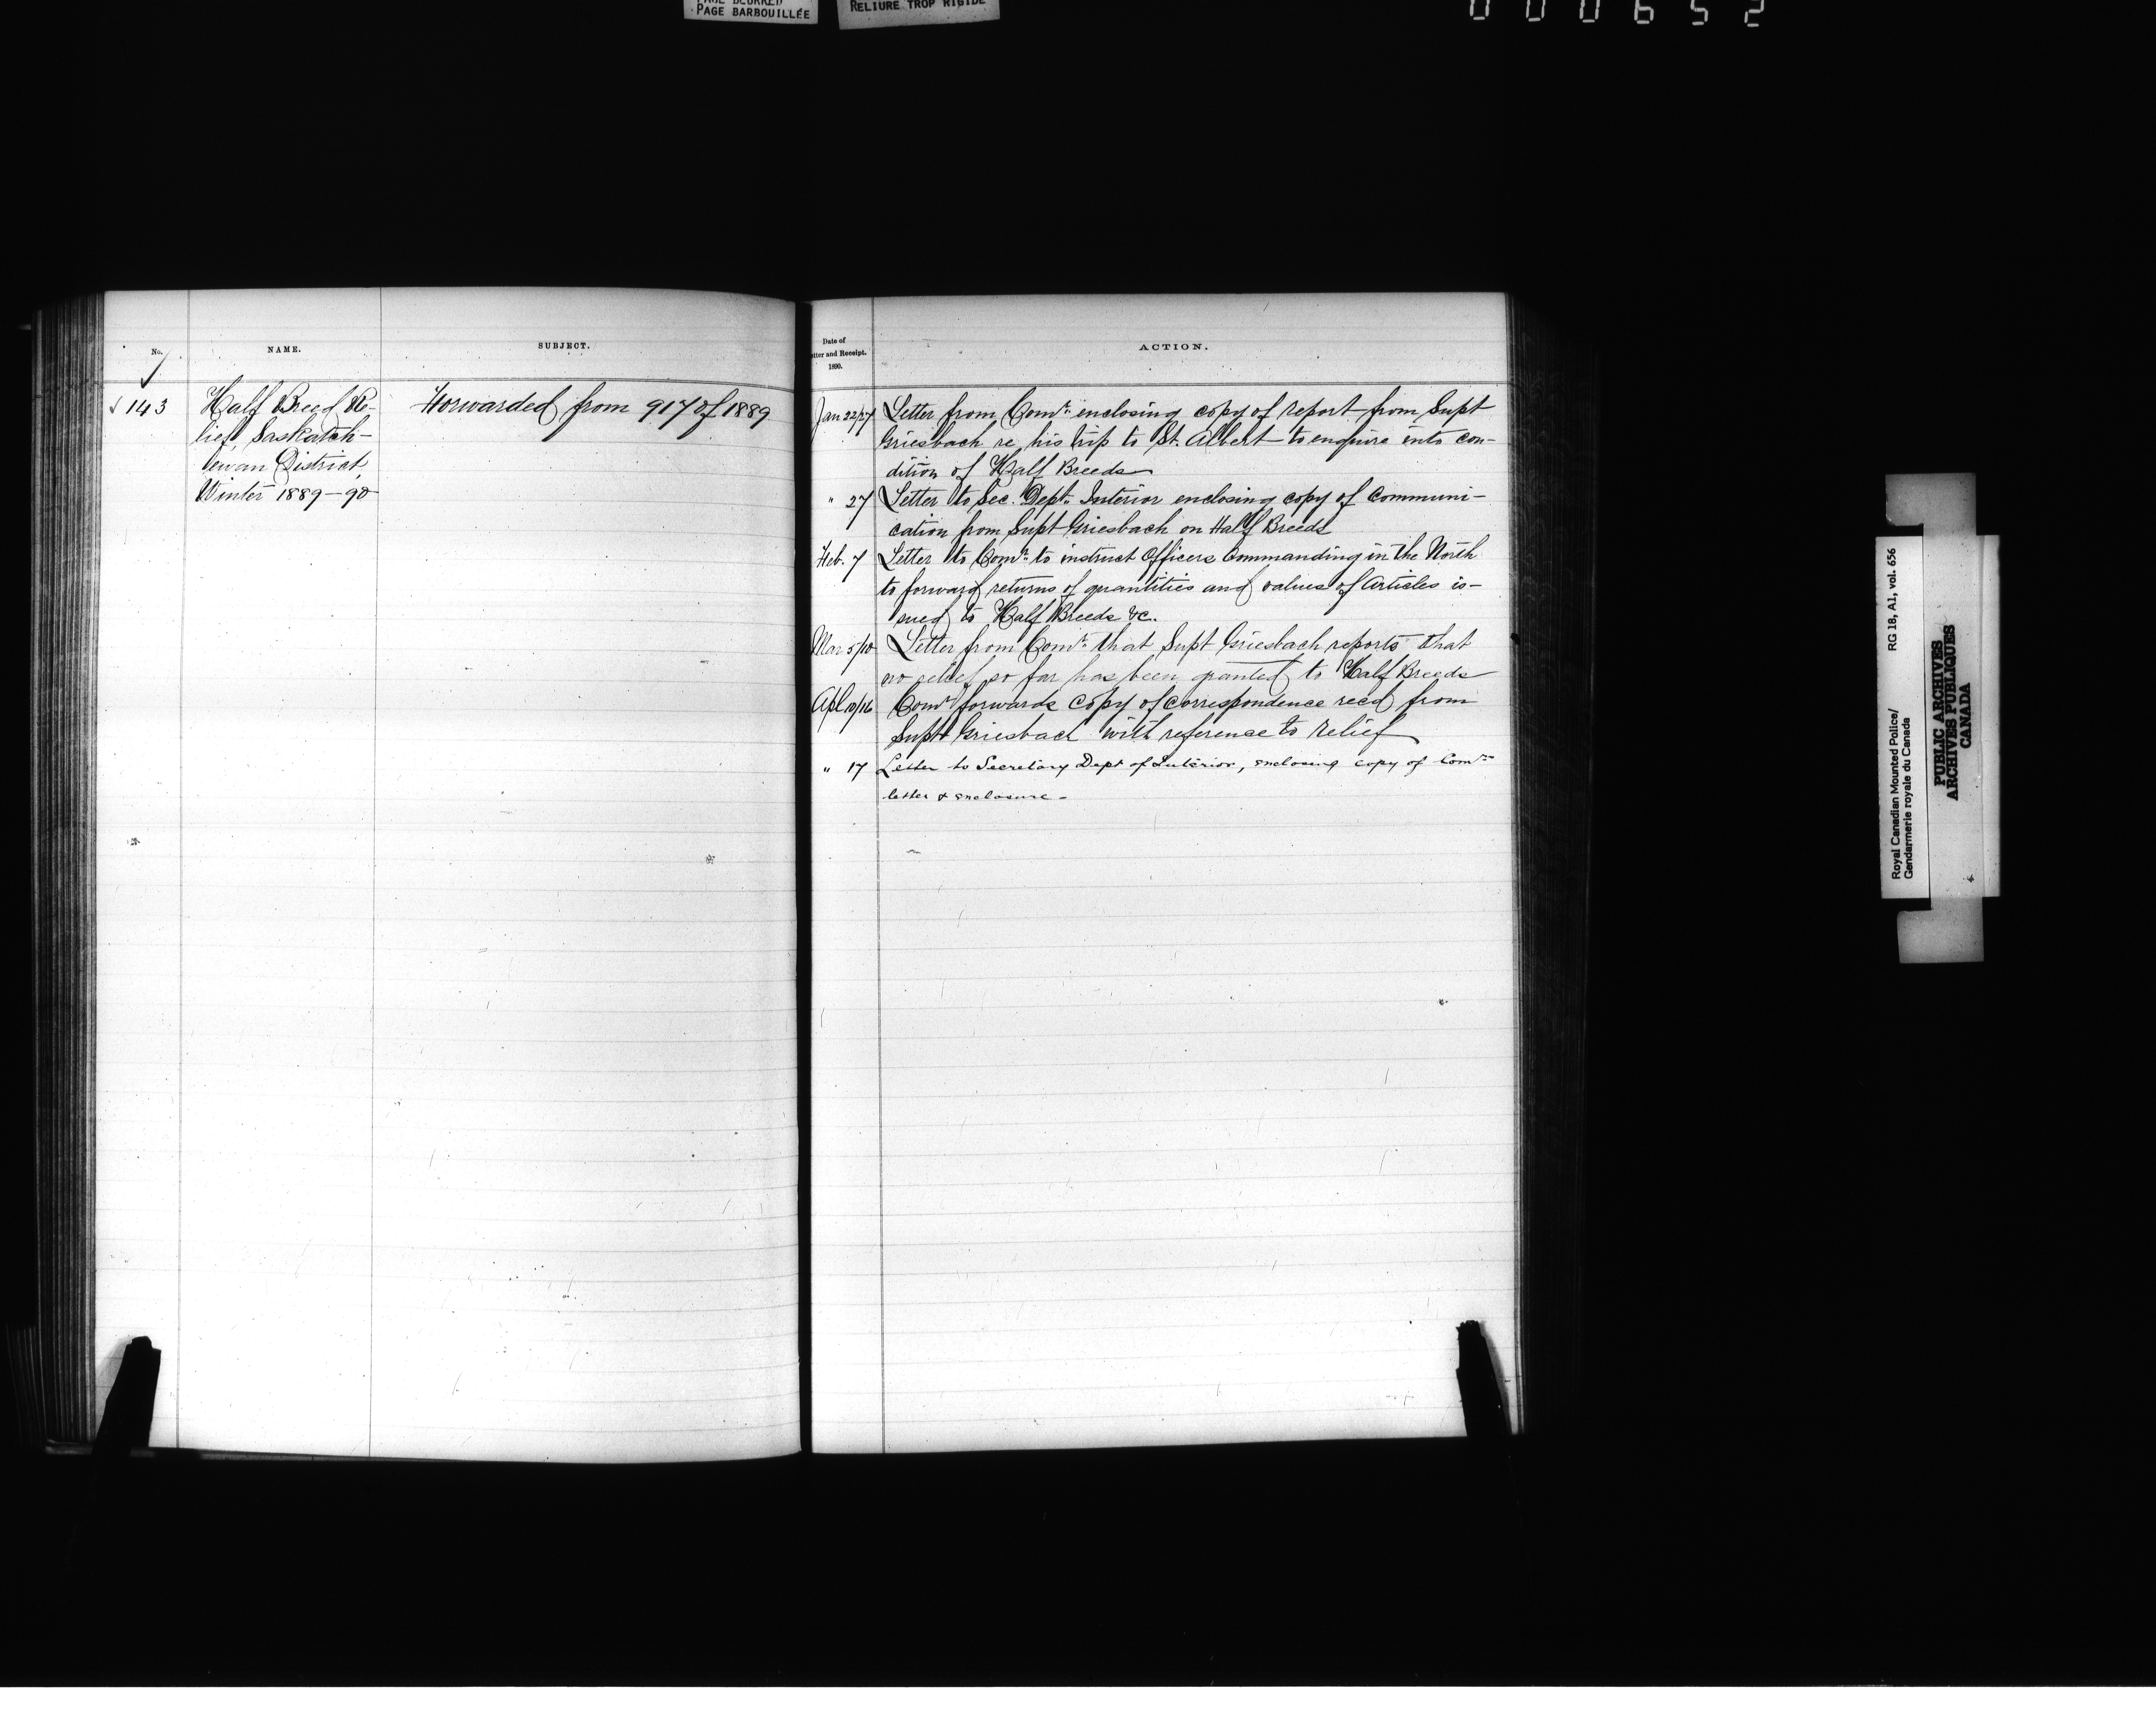 PAGE BARBOUILLÉE
RELIURE TROP RIGIDE
000652
No.
NAME.
SUBJECT.
√ 143
Half Breed Re-
lief, Saskatch-
ewan District,
Winter 1889-90
Forwarded from 917 of 1889
Date of
Letter and Receipt.
1890.
ACTION.
Jan 22/27 Letter from Comr. enclosing copy of report from Supt
Griesbach re his trip to St. Albert to enquire into con-
dition of Half Breeds
" 27 Letter to Sec. Dept. Interior enclosing copy of Communi-
cation from Supt Griesbach on Half Breeds
Feb. 7 Letter to Comr. to instruct Officers Commanding in the North
to forward returns of quantities and values of Articles is-
sued to Half Breeds &c.
Mar 5/10 Letter from Comr. that Supt Griesbach reports that
no relief so far has been granted to Half Breeds
Apl 10/16 Comr. forwards copy of correspondence recd from
Supt Griesbach with reference to relief
" 17 Letter to Secretary Dept of Interior, enclosing copy of Comrs
letter & enclosure -
Royal Canadian Mounted Police/ RG 18, A1, vol. 656
Gendarmerie royale du Canada
PUBLIC ARCHIVES
ARCHIVES PUBLIQUES
CANADA